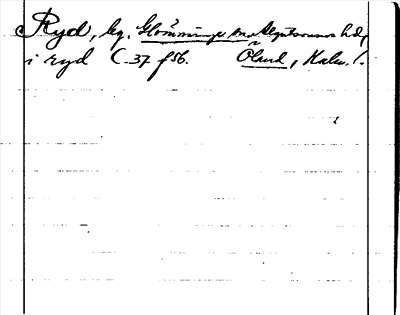 Ryd, by. Glömminge sn. Algutsrums hd,
i ryd C. 37 f 56. Öland, Kalm. l.